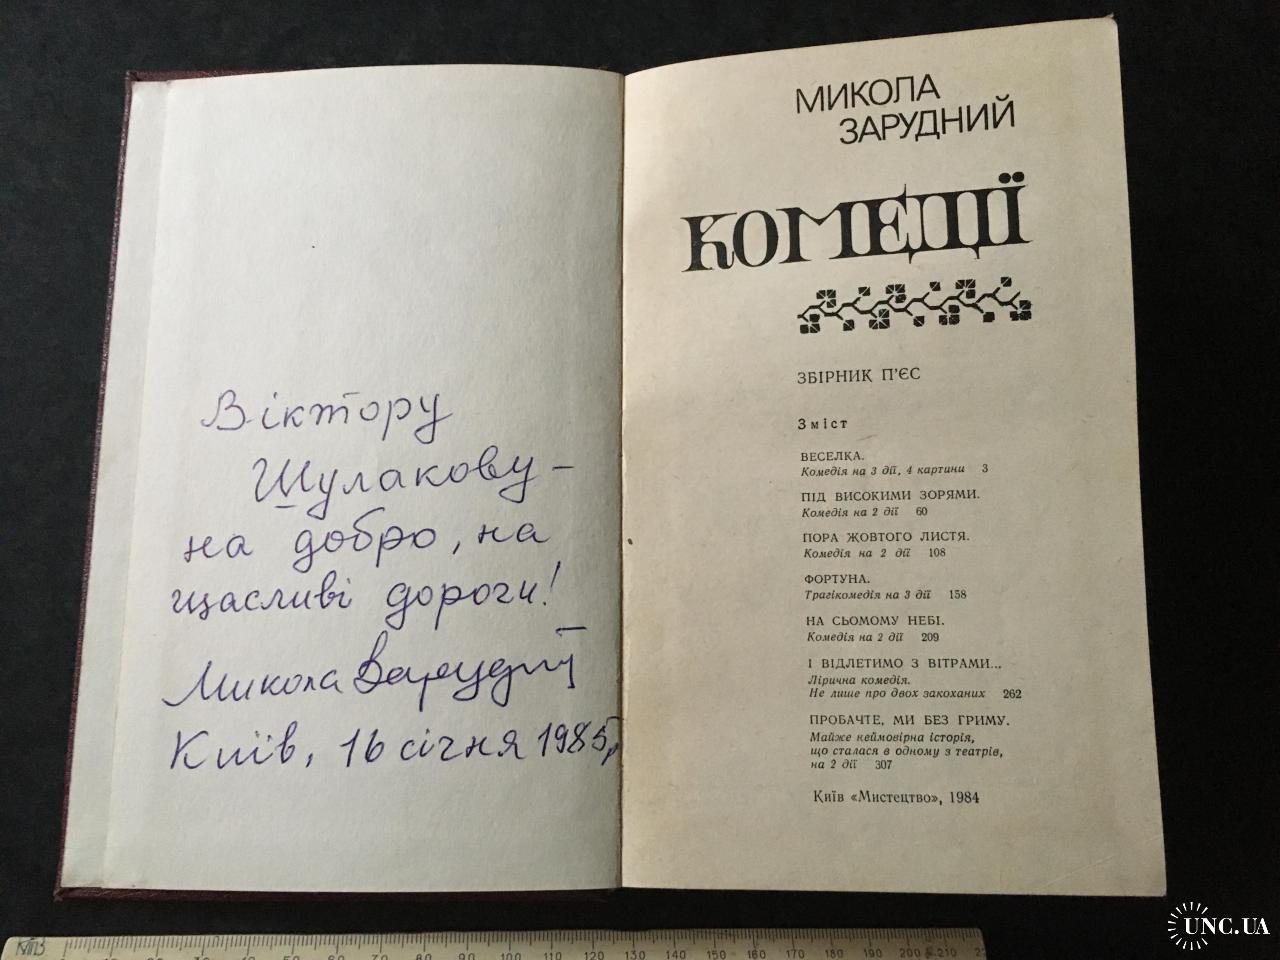 Віктору
Шулакову –
на добро, на
щасливі дороги!
Микола Зарудний
Київ, 16 січня 1985р
МИКОЛА
ЗАРУДНИЙ
КОМЕДІЇ
ЗБІРНИК П'ЄС
Зміст
ВЕСЕЛКА.
Комедія на 3 дії, 4 картини 3
ПІД ВИСОКИМИ ЗОРЯМИ.
Комедія на 2 дії 60
ПОРА ЖОВТОГО ЛИСТЯ.
Комедія на 2 дії 108
ФОРТУНА.
Трагікомедія на 3 дії 158
НА СЬОМОМУ НЕБІ.
Комедія на 2 дії 209
І ВІДЛЕТИМО З ВІТРАМИ...
Лірична комедія.
Не лише про двох закоханих 262
ПРОБАЧТЕ, МИ БЕЗ ГРИМУ.
Майже неймовірна історія,
що сталася в одному з театрів,
на 2 дії 307
Київ «Мистецтво», 1984
0 10 20 30 40 50 60 70 80 90 100 110 120 130 140 150 160 170 180 190 200 210
UNC.UA